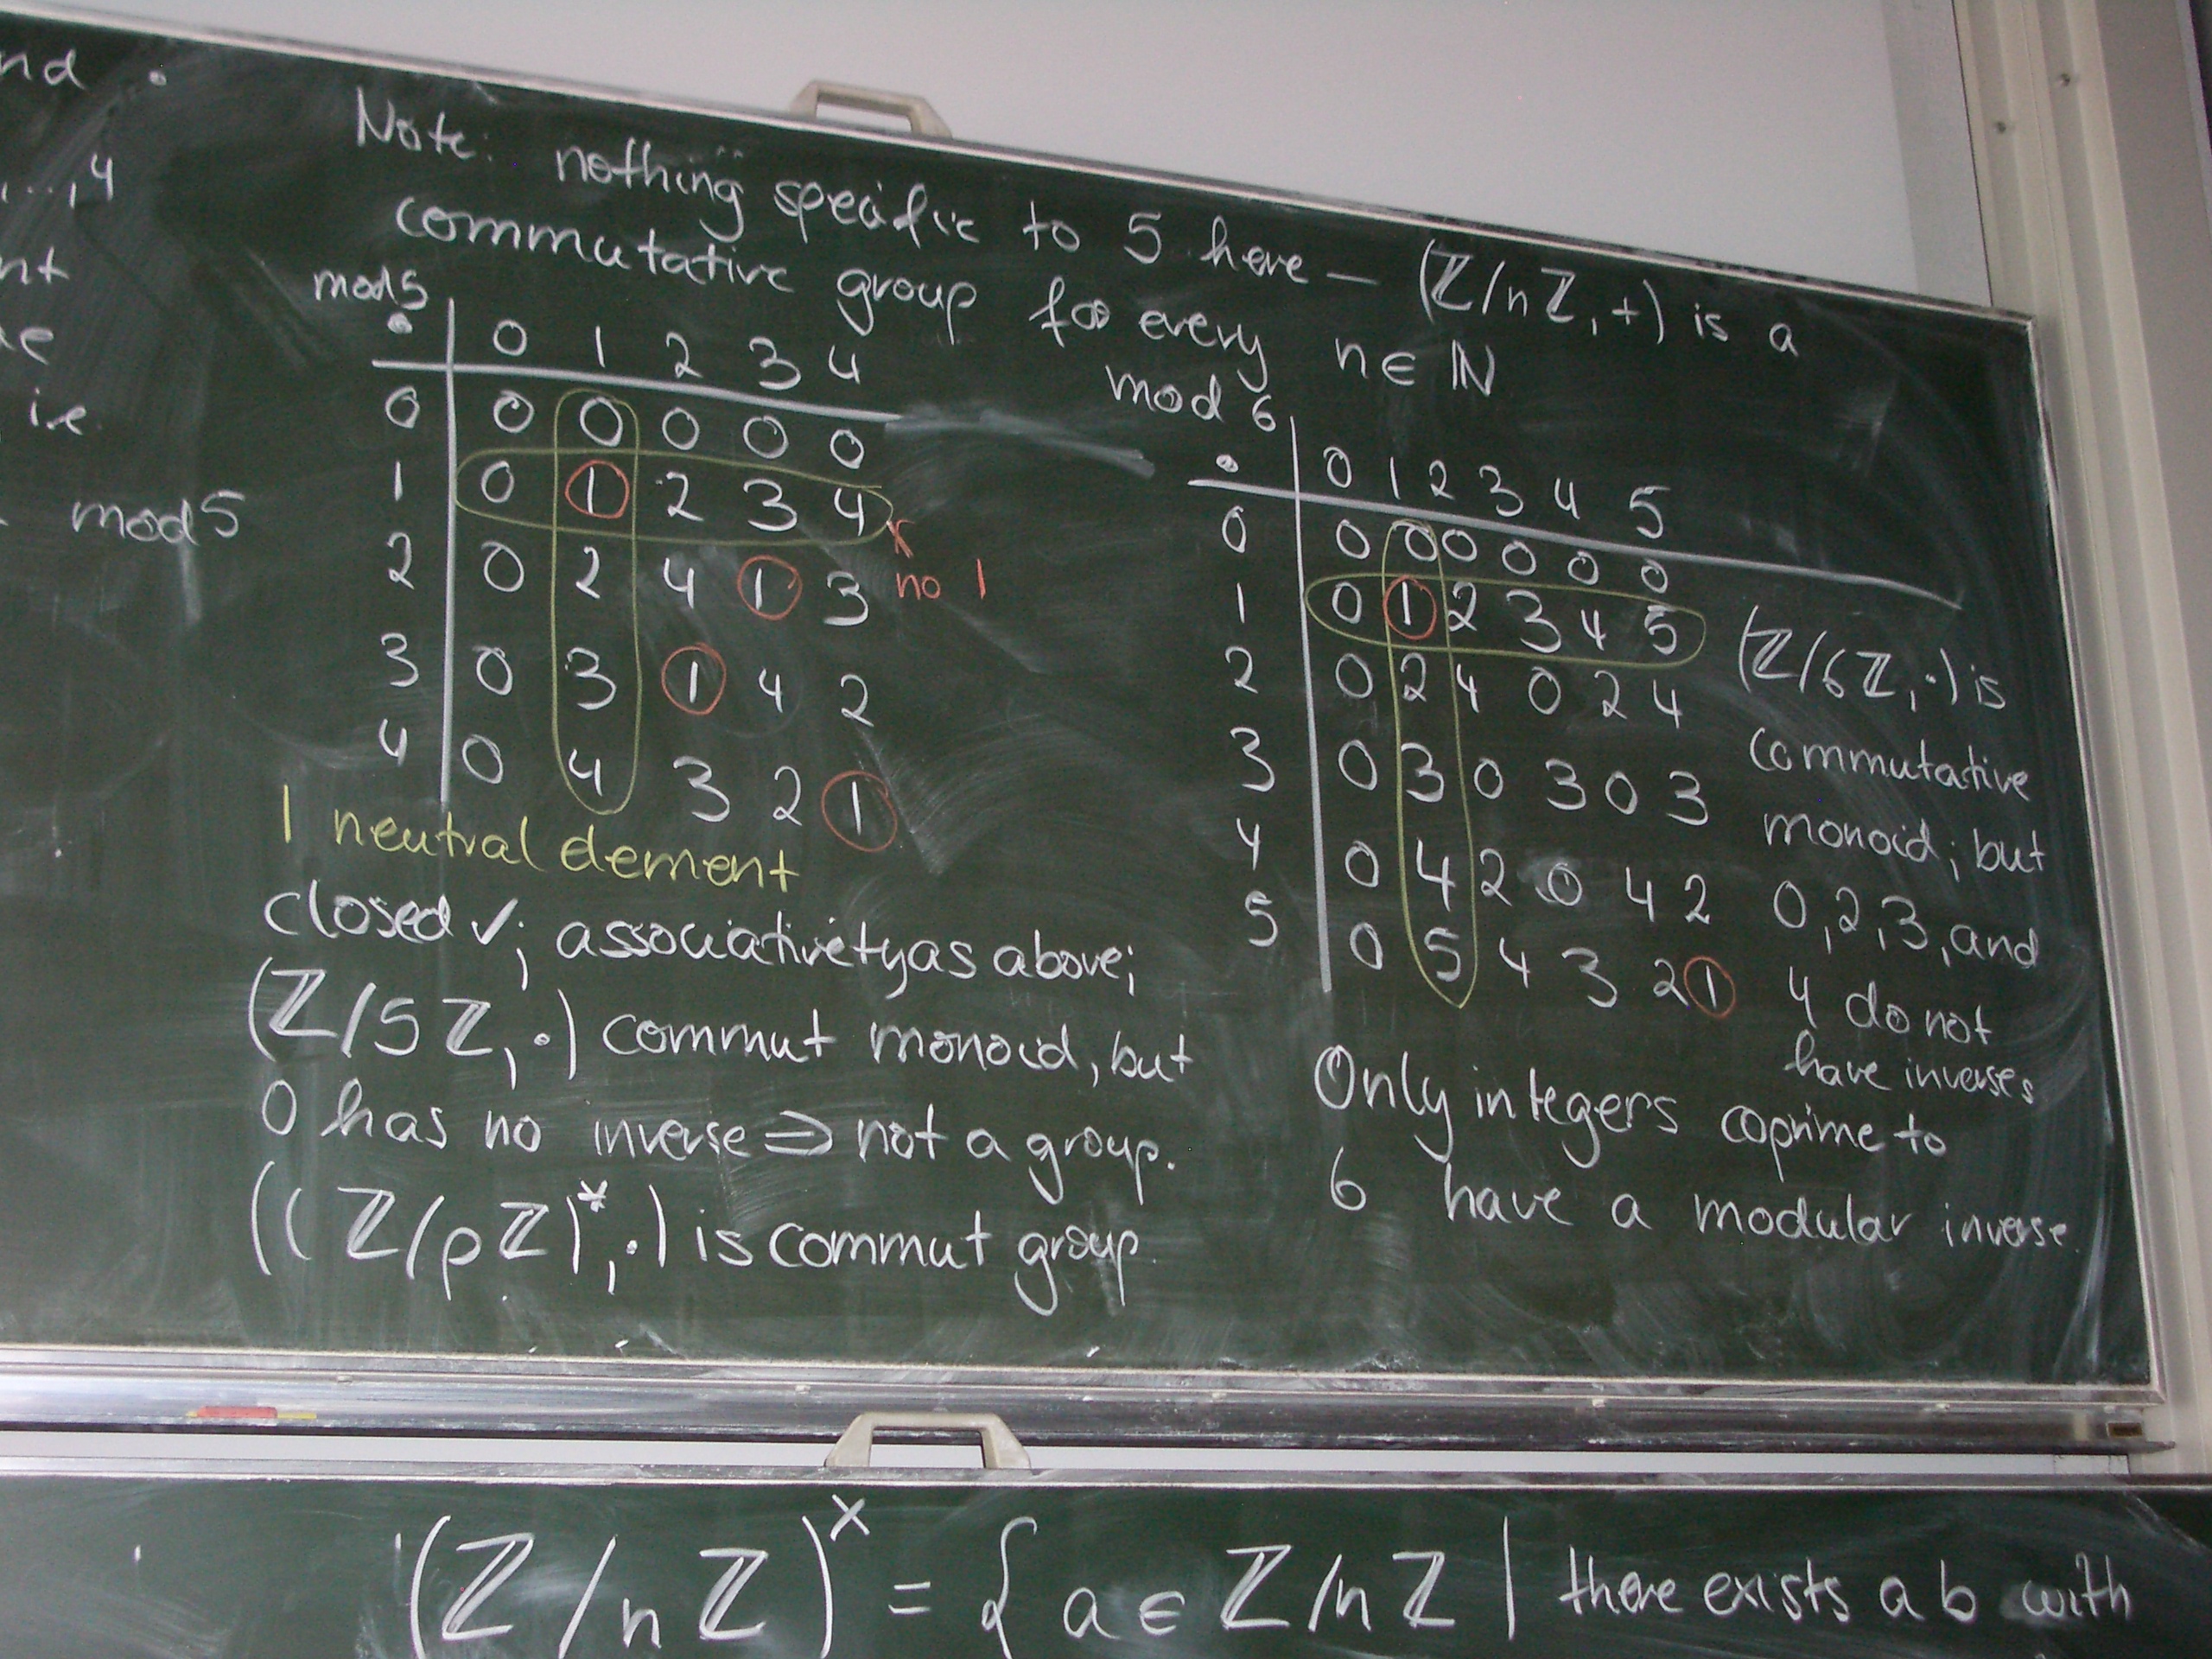 nd .
,...,4
nt
ie
mod5
Note: nothing specific to 5 here — (Z/nZ, +) is a
commutative group for every n∈ℕ
mod5
· | 0 1 2 3 4
0 | 0 0 0 0 0
1 | 0 1 2 3 4
2 | 0 2 4 1 3 no 1
3 | 0 3 1 4 2
4 | 0 4 3 2 1
1 neutral element
closed ✓; associativety as above;
(ℤ/5ℤ, ·) commut monoid, but
0 has no inverse ⇒ not a group.
((ℤ/pℤ)*, ·) is commut group.
mod 6
· | 0 1 2 3 4 5
0 | 0 0 0 0 0 0
1 | 0 1 2 3 4 5
2 | 0 2 4 0 2 4
3 | 0 3 0 3 0 3
4 | 0 4 2 0 4 2
5 | 0 5 4 3 2 1
(ℤ/6ℤ, ·) is
commutative
monoid; but
0, 2, 3, and
4 do not
have inverses
Only integers coprime to
6 have a modular inverse.
(ℤ/nℤ)ˣ = { a ∈ ℤ/nℤ | there exists a b with